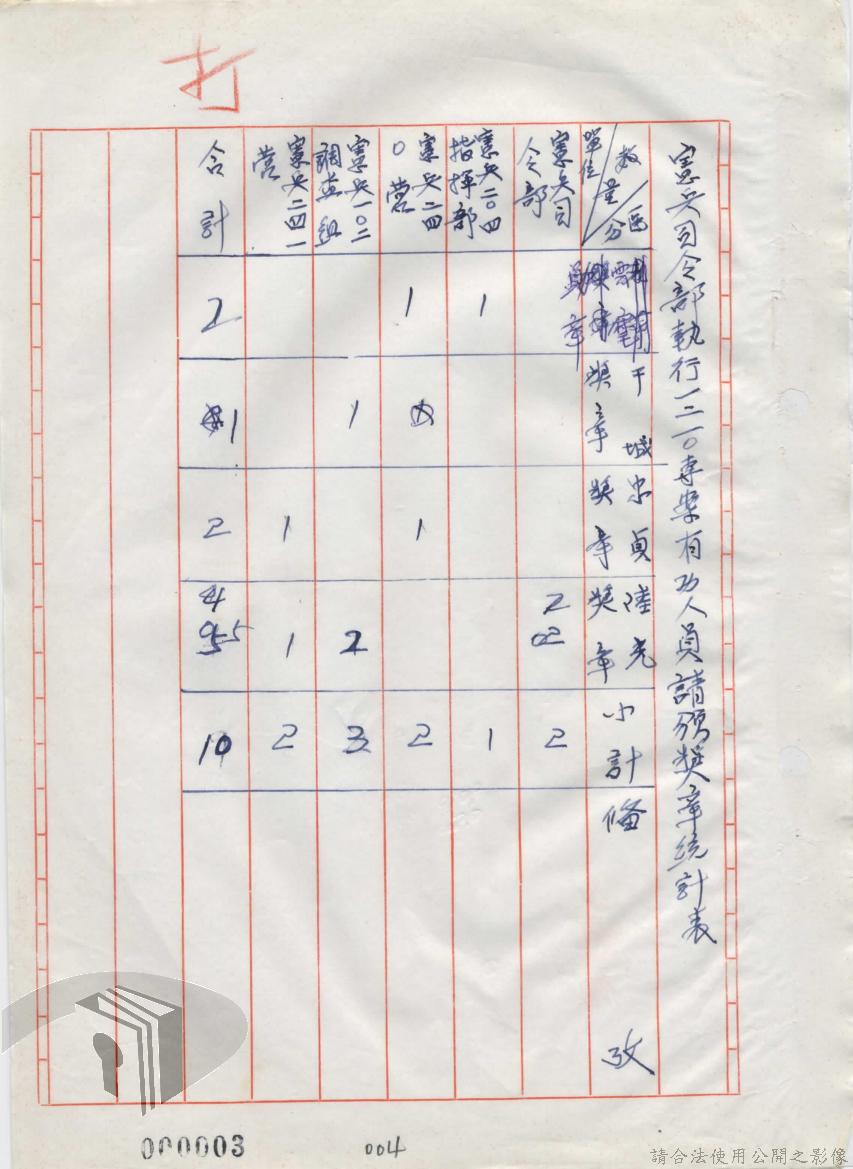 打
憲兵司令部執行一二一〇專案有功人員請頒獎章統計表
單位 數量 區分
勛章
干城獎章
忠貞獎章
陸光獎章
小計
備攷
憲兵司令部 2 2
憲兵二〇四指揮部 1 1
憲兵二四〇營 1 1 2
憲兵一〇二調查組 1 2 3
憲兵二四一營 1 1 2
合計 2 1 2 5 10
000003
004
請合法使用公開之影像